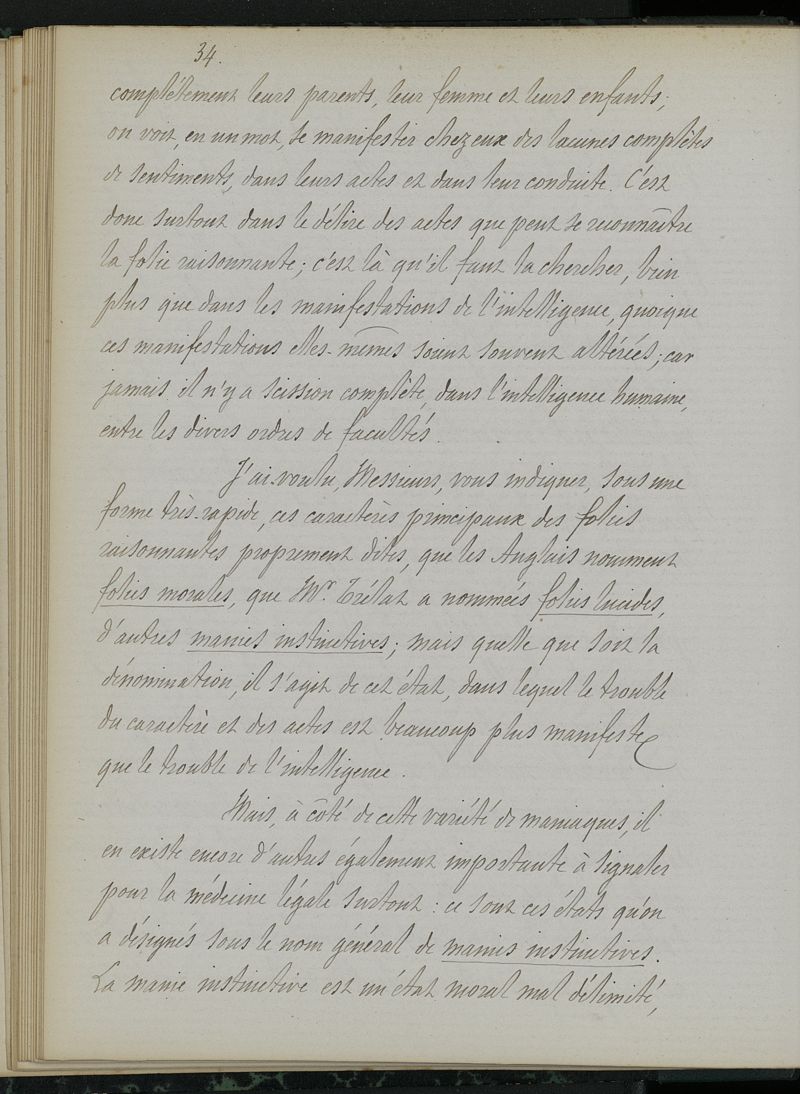 34.
complétement leurs parents, leur femme et leurs enfants;
on voit, en un mot, se manifester chez eux des lacunes complètes
de sentiments, dans leurs actes et dans leur conduite. C'est
donc surtout dans le délire des actes que peut se reconnaître
la folie raisonnante; c'est là qu'il faut la chercher, bien
plus que dans les manifestations de l'intelligence, quoique
ces manifestations elles-mêmes soient souvent altérées; car
jamais il n'y a scission complète, dans l'intelligence humaine,
entre les divers ordres de facultés.
J'ai voulu, Messieurs, vous indiquer, sous une
forme très-rapide, ces caractères principaux des folies
raisonnantes proprement dites, que les Anglais nomment
folies morales, que Mr. Trélat a nommées folies lucides,
d'autres manies instinctives; mais quelle que soit la
dénomination, il s'agit de cet état, dans lequel le trouble
du caractère et des actes est beaucoup plus manifeste
que le trouble de l'intelligence.
Mais, à côté de cette variété de maniaques, il
en existe encore d'autres également importante à signaler
pour la médecine légale surtout: ce sont ces états qu'on
a désignés sous le nom général de manies instinctives.
La manie instinctive est un état moral mal délimité,